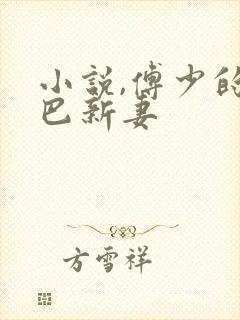 小說,傅少的
巴新妻
方雪祥